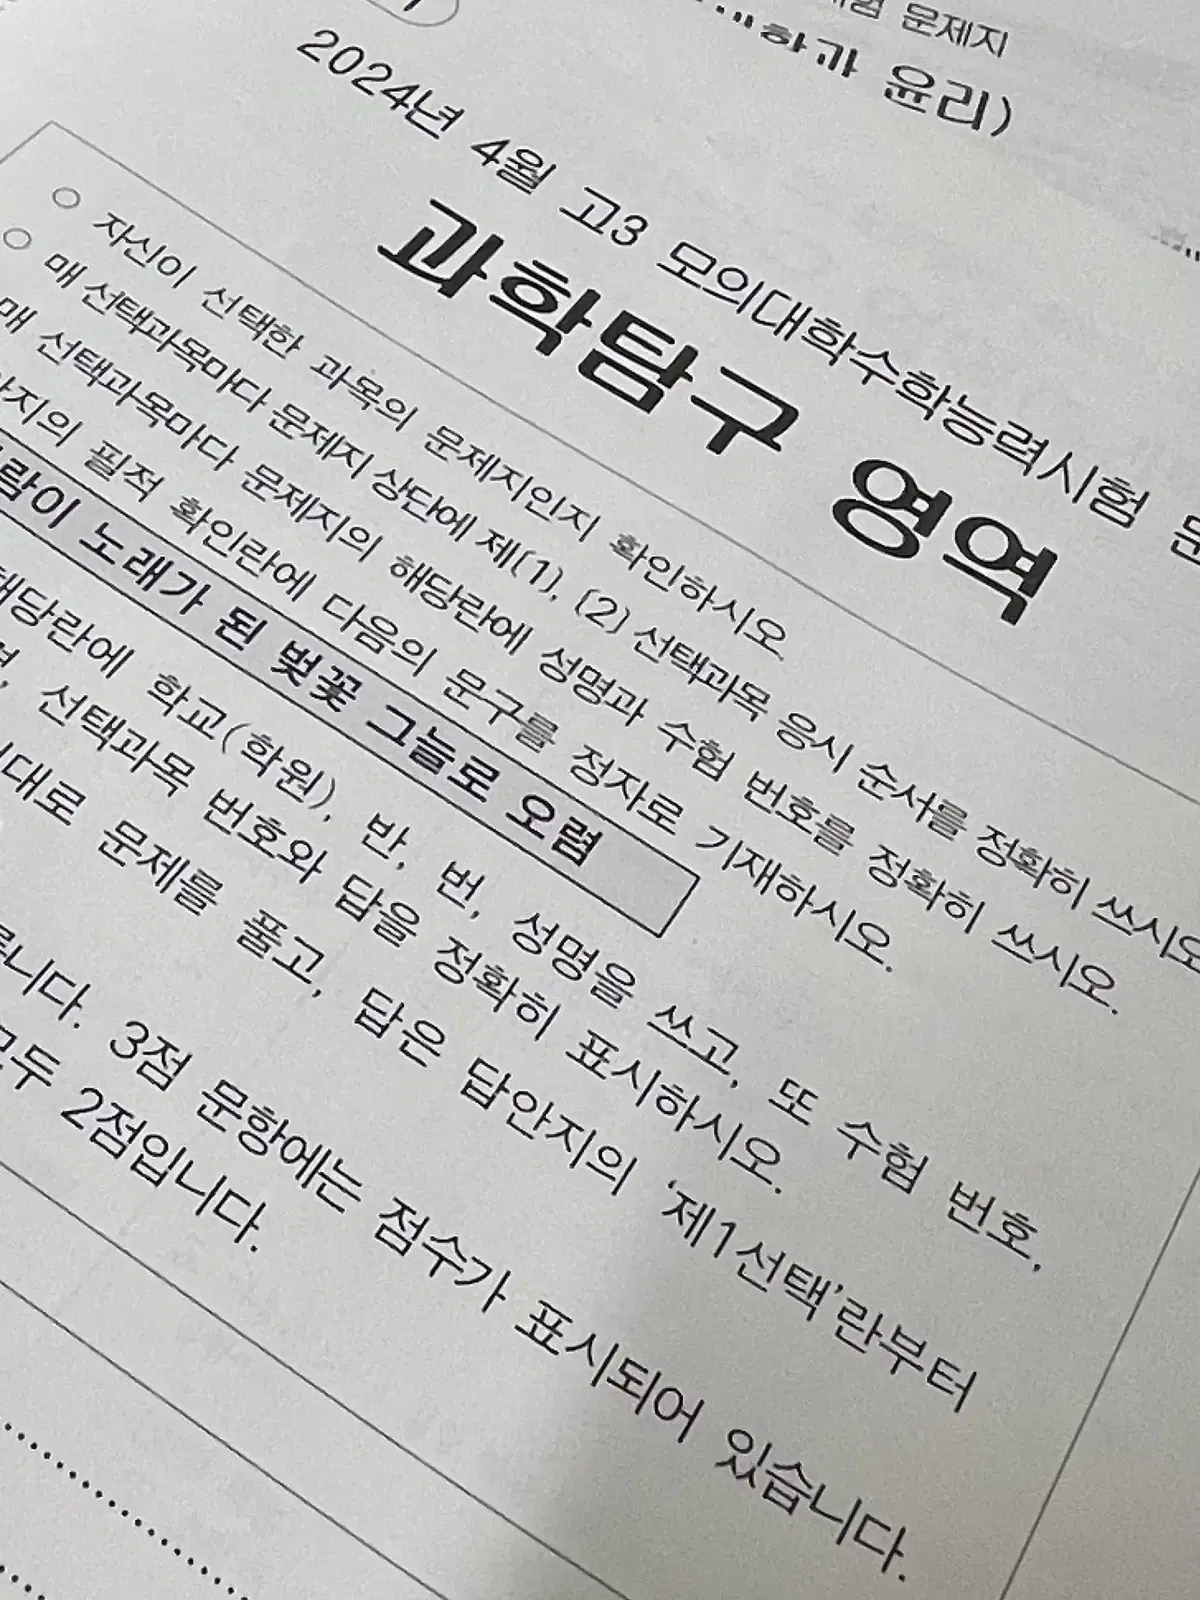 문제지
윤리)
2024년 4월 고3 모의대학수학능력시험
과학탐구 영역
○ 자신이 선택한 과목의 문제지인지 확인하시오.
○ 매 선택과목마다 문제지 상단에 제(1), (2) 선택과목 응시 순서를 정확히 쓰시오
매 선택과목마다 문제지의 해당란에 성명과 수험 번호를 정확히 쓰시오.
필적 확인란에 다음의 문구를 정자로 기재하시오.
노래가 된 벚꽃 그늘로 오렴
해당란에 학교(학원), 반, 번, 성명을 쓰고, 또 수험 번호,
선택과목 번호와 답을 정확히 표시하시오.
문제를 풀고, 답은 답안지의 ‘제1선택’란부터
3점 문항에는 점수가 표시되어 있습니다.
모두 2점입니다.